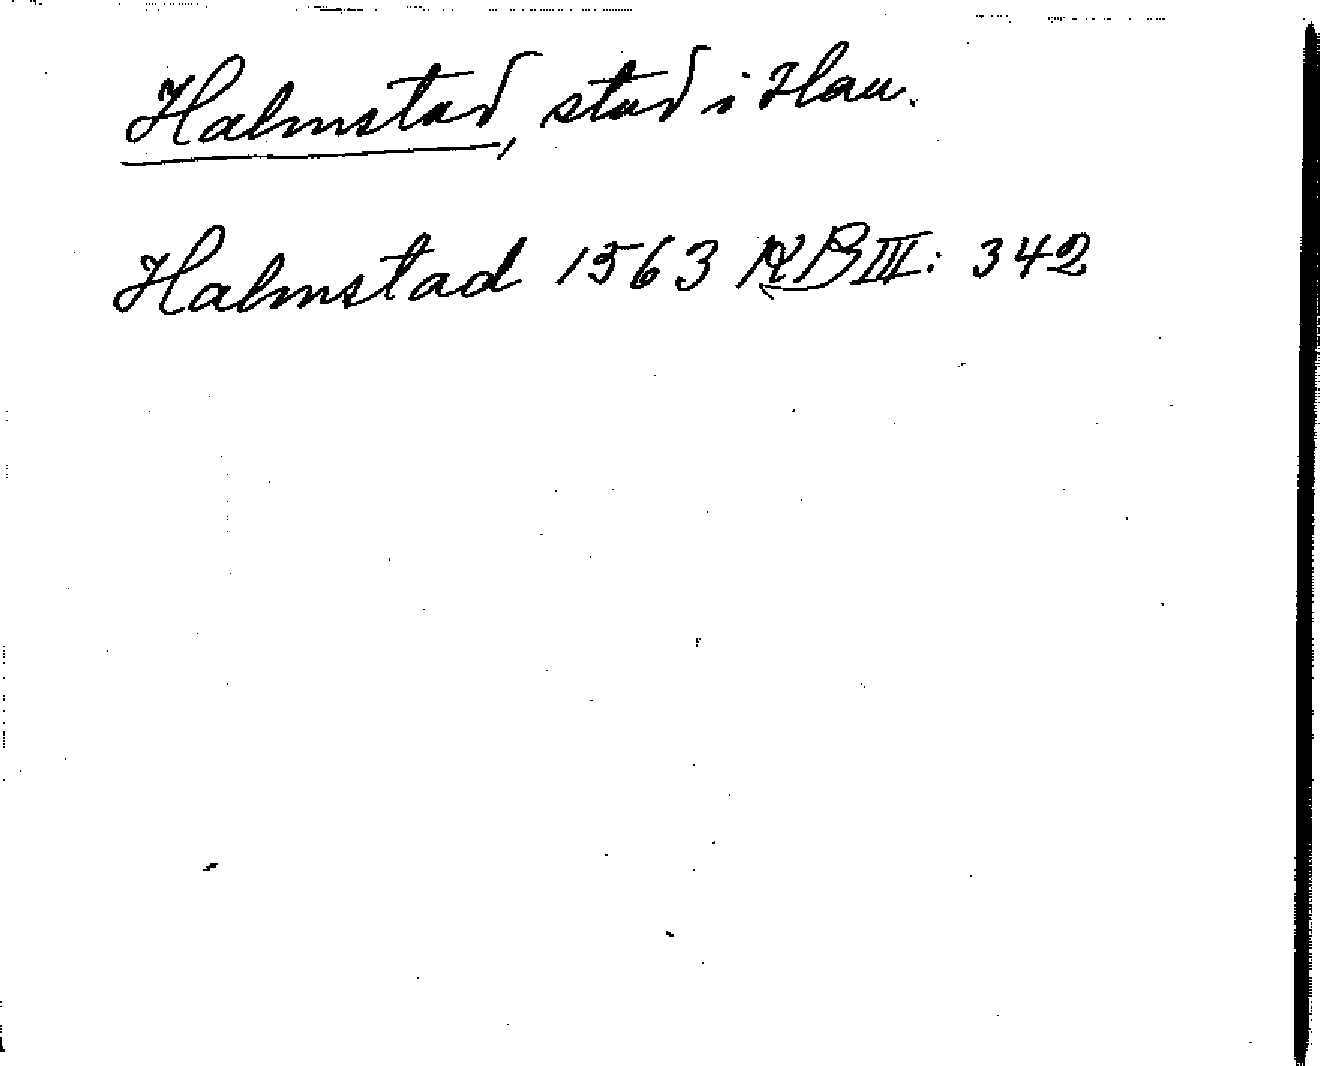 Halmstad, stad i Hall.
Halmstad 1563 KB III: 342